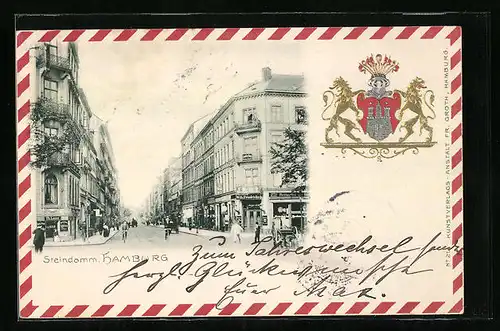 Steindamm. HAMBURG
Zum Jahreswechsel
herzl. Glückwünsche
Euer Max.
KUNSTVERLAGS-ANSTALT FR. GROTH, HAMBURG.